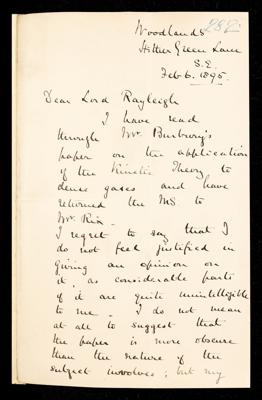 282
Woodlands
Hither Green Lane
S.E.
Feb 6. 1895.
Dear Lord Rayleigh
I have read
through Mr. Burbury's
paper on the application
of the Kinetic Theory to
dense gases and have
returned the MS. to
Mr. Rix.
I regret to say that I
do not feel justified in
giving an opinion on
it, as considerable parts
of it are quite unintelligible
to me. I do not mean
at all to suggest that
the paper is more obscure
than the nature of the
subject involves; but my